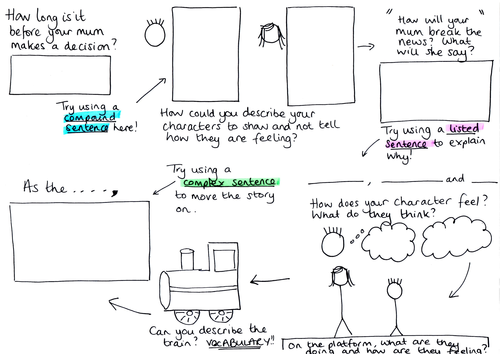 How long is it
before your mum
makes a decision?
Try using a
compound
sentence here!
How could you describe your
characters to show and not tell
how they are feeling?
"How will your
mum break the
news? What
will she say?"
Try using a listed
sentence to explain
why!
________, ________ and ________
How does your character feel?
What do they think?
On the platform, what are they
doing and how are they feeling?
Can you describe the
train? VOCABULARY!!
Try using a
complex sentence
to move the story
on..
As the ....,